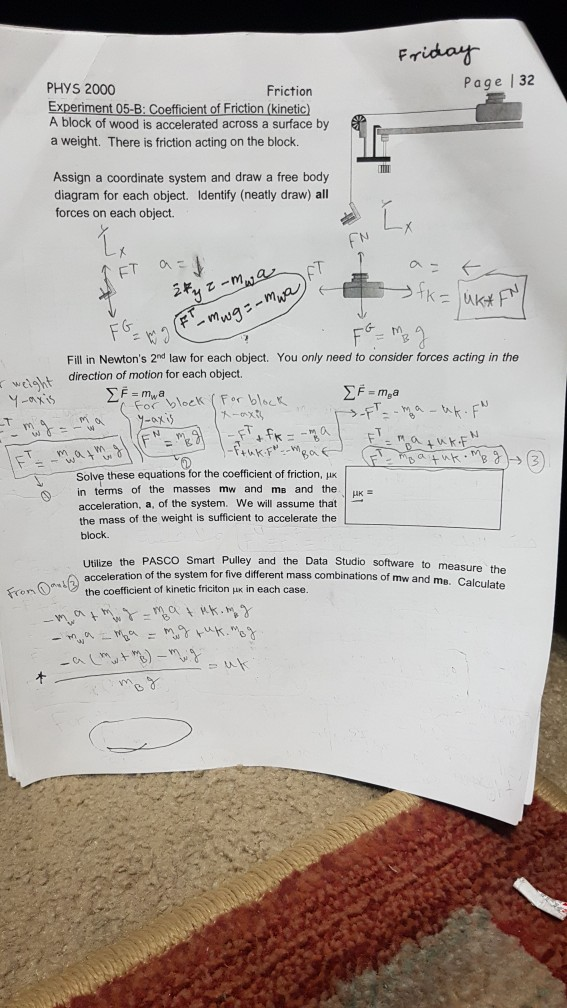 Friday
Page | 32
PHYS 2000 Friction
Experiment 05-B: Coefficient of Friction (kinetic)
A block of wood is accelerated across a surface by
a weight. There is friction acting on the block.
Assign a coordinate system and draw a free body
diagram for each object. Identify (neatly draw) all
forces on each object.
x
FT
a = ↓
ΣFy = -mwa
FT - mwg = -mwa
FG = mg
x
FN
FT
a = ←
fk = uk* FN
FG = mB g
Fill in Newton's 2nd law for each object. You only need to consider forces acting in the
direction of motion for each object.
weight
y-axis
ΣF = mwa
FT - mwg = -mwa
FT = -mwa + mwg
①
For block
y-axis
FN = mBg
②
For block
x-axis
-FT + fk = -mBa
-FT + uk.FN = -mBa
ΣF = mBa
→ -FT = -mBa - uk.FN
FT = mBa + uk.FN
FT = mBa + uk.mBg → ③
Solve these equations for the coefficient of friction, μK
in terms of the masses mw and mB and the
acceleration, a, of the system. We will assume that
the mass of the weight is sufficient to accelerate the
block.
μK =
Utilize the PASCO Smart Pulley and the Data Studio software to measure the
acceleration of the system for five different mass combinations of mw and mB. Calculate
the coefficient of kinetic friciton μK in each case.
From ① and ③
-mwa + mwg = mBa + uk.mBg
-mwa - mBa = mwg + uk.mBg
* -a(mw+mB) - mwg / mBg = uk